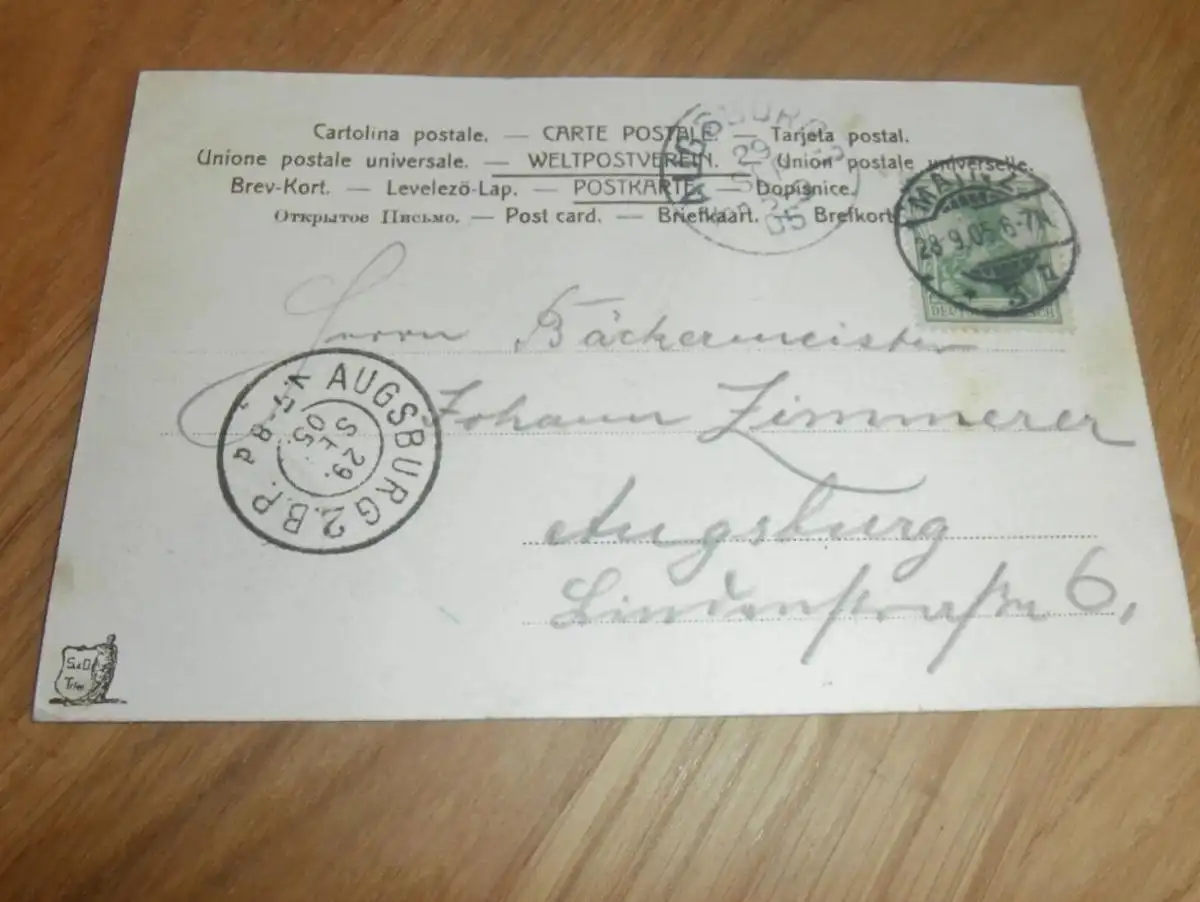 Cartolina postale. — CARTE POSTALE. — Tarjeta postal.
Unione postale universale. — WELTPOSTVEREIN. — Union postale universelle.
Brev-Kort. — Levelező-Lap. — POSTKARTE. — Dopisnice.
Открытое Письмо. — Post card. — Briefkaart. — Brefkort
AUGSBURG
29
SEP
05
MAINZ
28.9.05.6-7N.
* 5 *
DEUTSCHES REICH
Herrn Bäckermeister
Johann Zimmerer
Augsburg
Lindenstraße 6,
AUGSBURG 2.B.P.
29.
SEP.
05.
S.& D.
Trier